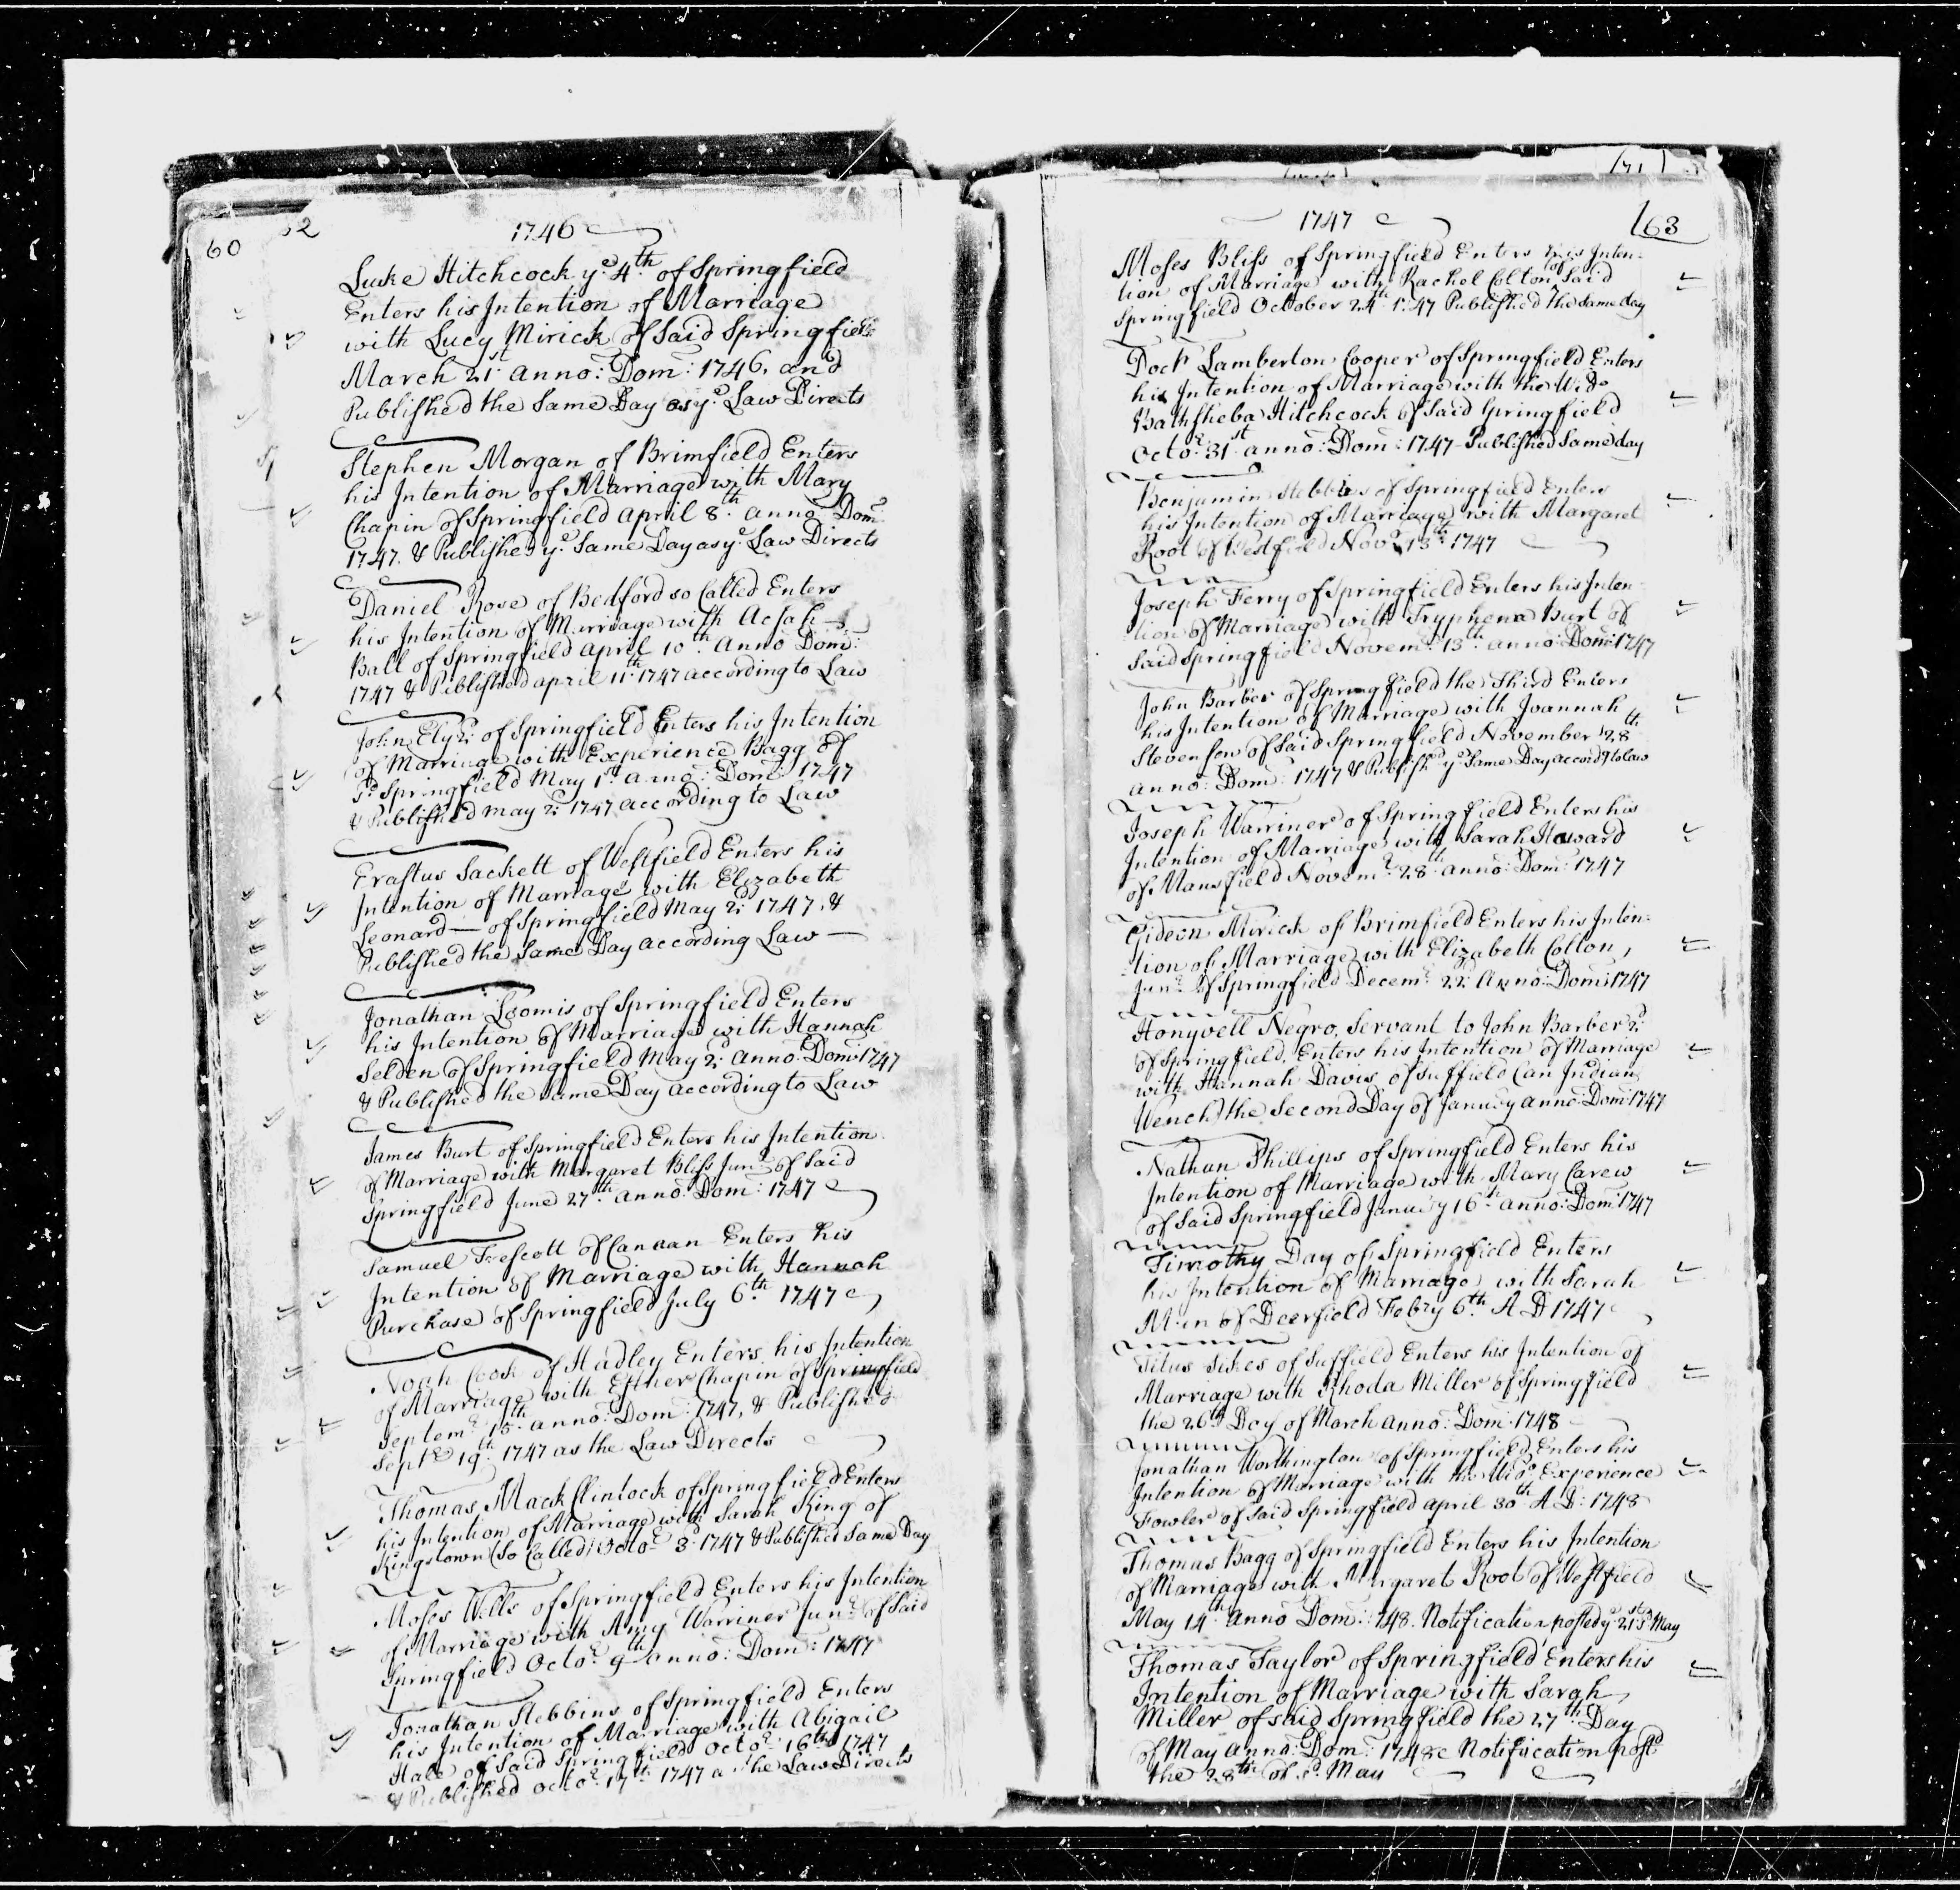 60
1746
Luke Hitchcock yᵉ 4th of Springfield
Enters his Intention of Marriage
with Lucy Mirick of Said Springfield
March 21st anno: Dom: 1746, and
Published the Same Day as yᵉ Law Directs
Stephen Morgan of Brimfield Enters
his Intention of Marriage with Mary
Chapin of Springfield April 8th anno Dom:
1747. & Published yᵉ Same Day as yᵉ Law Directs
Daniel Rose of Bedford so Called Enters
his Intention of Marriage with Acsah
Ball of Springfield April 10th Anno Dom:
1747 & Published april 11th 1747 according to Law
John Ely 2d of Springfield Enters his Intention
of Marriage with Experience Bagg of
sd Springfield May 1st anno: Dom: 1747
& Published may 2d 1747 according to Law
Erastus Sackett of Westfield Enters his
Intention of Marriage with Elizabeth
Leonard — of Springfield May 2d 1747, &
Published the Same Day according Law —
Jonathan Loomis of Springfield Enters
his Intention of Marriage with Hannah
Selden of Springfield May 2d anno: Dom: 1747
& Published the Same Day according to Law
James Burt of Springfield Enters his Intention
of Marriage with Margaret Bliss Junr of Said
Springfield June 27th anno: Dom: 1747
Samuel Frescott of Canaan Enters his
Intention of Marriage with Hannah
Purchase of Springfield July 6th 1747
Noah Cook of Hadley Enters his Intention
of Marriage with Esther Chapin of Springfield
Septemr 15th anno: Dom: 1747, & Published
Septr 19th 1747 as the Law Directs
Thomas Mackclintock of Springfield Enters
his Intention of Marriage with Sarah King of
Kingstown (So Called) Octor 3d 1747 & Published Same Day
Moses Wills of Springfield Enters his Intention
of Marriage with Amy Warriner Junr of Said
Springfield Octor 9th anno: Dom: 1747
Jonathan Stebbins of Springfield Enters
his Intention of Marriage with Abigail
Hale of Said Springfield Octor 16th 1747
& Published Octor 17th 1747 as the Law Directs
1747
63
Moses Bliss of Springfield Enters his Inten-
tion of Marriage with Rachel Colton of Said
Springfield October 24th 1747 Published the Same day
Docr Lamberton Cooper of Springfield Enters
his Intention of Marriage with the Wido
Bathsheba Hitchcock of Said Springfield
Octor 31st anno: Dom: 1747 Published Same day
Benjamin Stebbins of Springfield Enters
his Intention of Marriage with Margaret
Root of Westfield Novr 13th 1747
Joseph Ferry of Springfield Enters his Inten-
tion of Marriage with Tryphena Burt of
Said Springfield Novemr 13th anno: Dom: 1747
John Barber of Springfield the Third Enters
his Intention of Marriage with Joannah
Stevenson of Said Springfield November 28th
anno: Dom: 1747 & Publishd yᵉ Same Day accordg to Law
Joseph Warriner of Springfield Enters his
Intention of Marriage with Sarah Howard
of Mansfield Novemr 28th anno: Dom: 1747
Gideon Mirick of Brimfield Enters his Inten-
tion of Marriage with Elizabeth Colton,
Junr of Springfield Decemr 22d Anno: Dom: 1747
Honyvell Negro, Servant to John Barber 2d
of Springfield, Enters his Intention of Marriage
with Hannah Davis of Suffield (an Indian
Wench) the Second Day of January anno: Dom: 1747
Nathan Phillips of Springfield Enters his
Intention of Marriage with Mary Carew
of Said Springfield January 16th anno: Dom: 1747
Timothy Day of Springfield Enters
his Intention of Marriage with Sarah
of Deerfield Febry 6th A D 1747
Titus Sikes of Suffield Enters his Intention of
Marriage with Rhoda Miller of Springfield
the 26th Day of March anno: Dom: 1748
Jonathan Worthington of Springfield Enters his
Intention of Marriage with the Wido Experience
Fowler of Said Springfield april 30th A D: 1748
Thomas Bagg of Springfield Enters his Intention
of Marriage with Margaret Root of Westfield
May 14th Anno Dom: 1748. Notification posted yᵉ 21st sd May
Thomas Taylor of Springfield Enters his
Intention of Marriage with Sarah
Miller of said Springfield the 27th Day
of May anno: Dom: 1748 Notification postd
the 28th of sd May